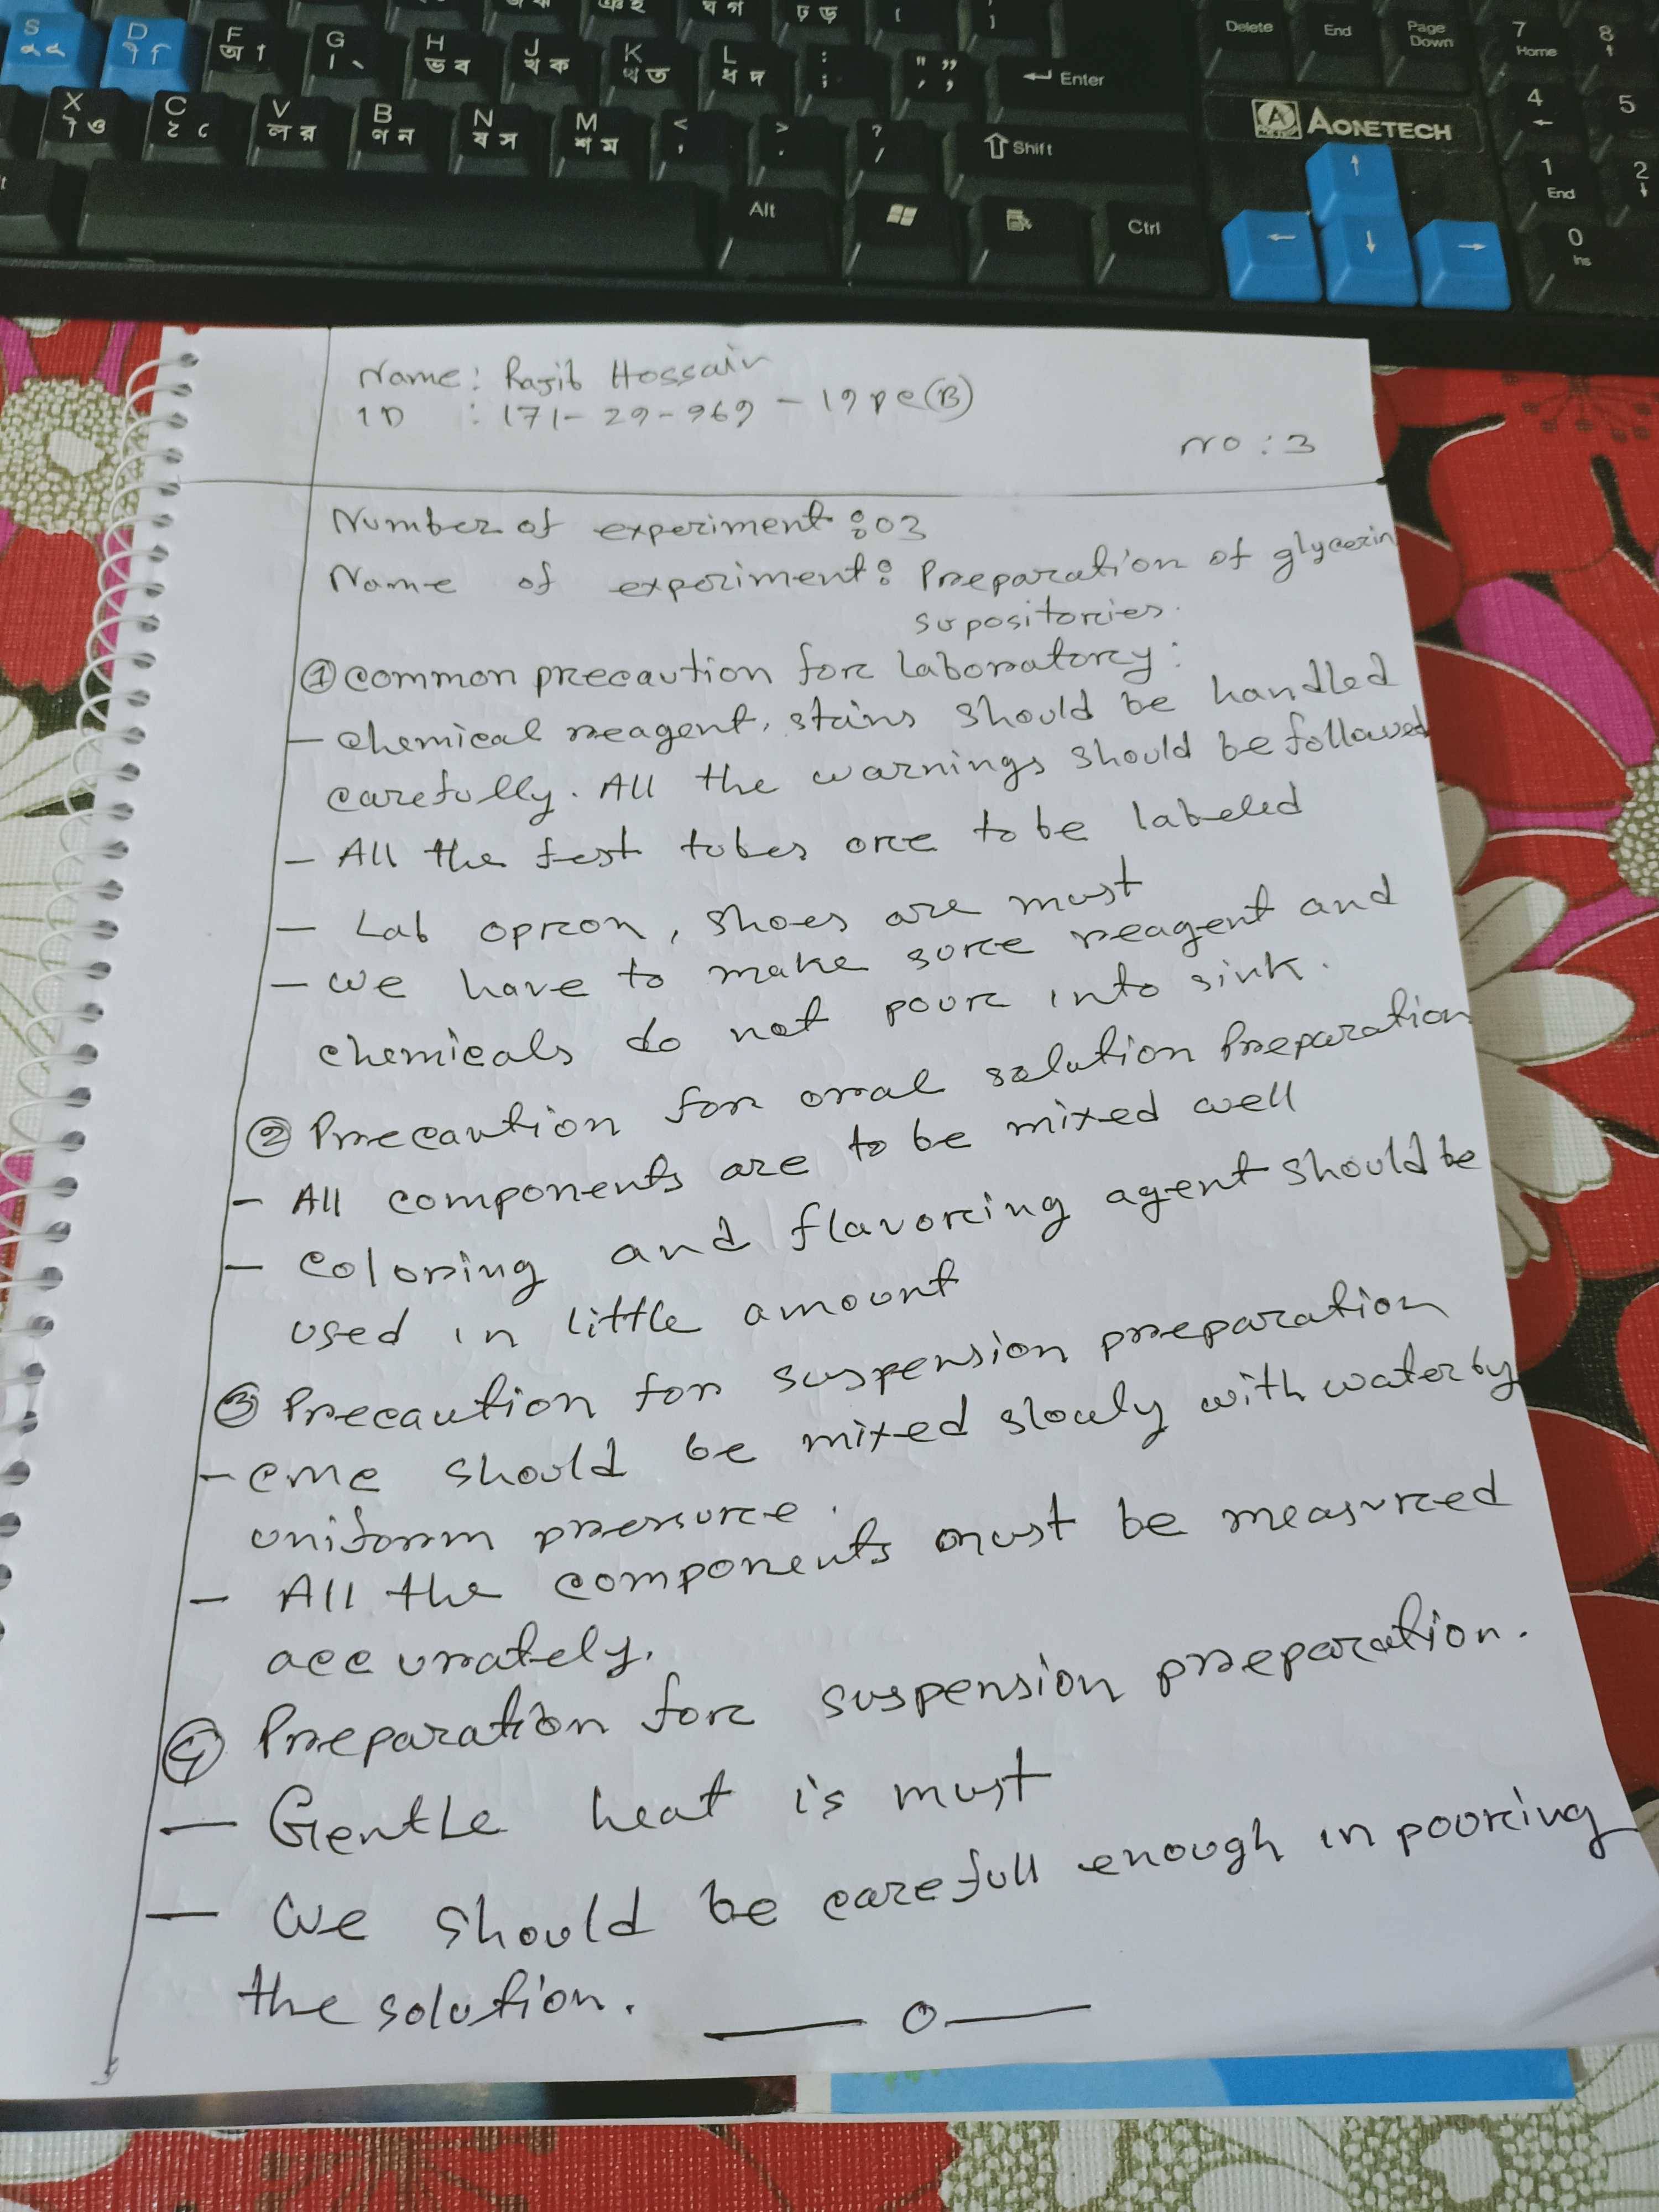 S
D
F
G
H
J
K
L
Enter
Delete
End
Page Down
7 Home
8
X
C
V
B
N
M
Shift
AONETECH
4
5
Alt
Ctrl
1 End
2
0 Ins
Name: Rajib Hossain
ID : 171-29-969 - 19pc(B)
NO : 3
Number of experiment : 03
Name of experiment: Preparation of glycerin
supositories.
① Common precaution for laboratory:
- chemical reagent, stains should be handled
carefully. All the warnings should be followed
- All the test tubes are to be labeled
- Lab apron, shoes are must
- we have to make sure reagent and
chemicals do not pour into sink.
② Precaution for oral solution Preparation
- All components are to be mixed well
- Coloring and flavoring agent should be
used in little amount
③ Precaution for suspension preparation
- CMC should be mixed slowly with water by
uniform pressure.
- All the components must be measured
accurately.
④ Preparation for suspension preparation.
- Gentle heat is must
- We should be carefull enough in pouring
the solution.